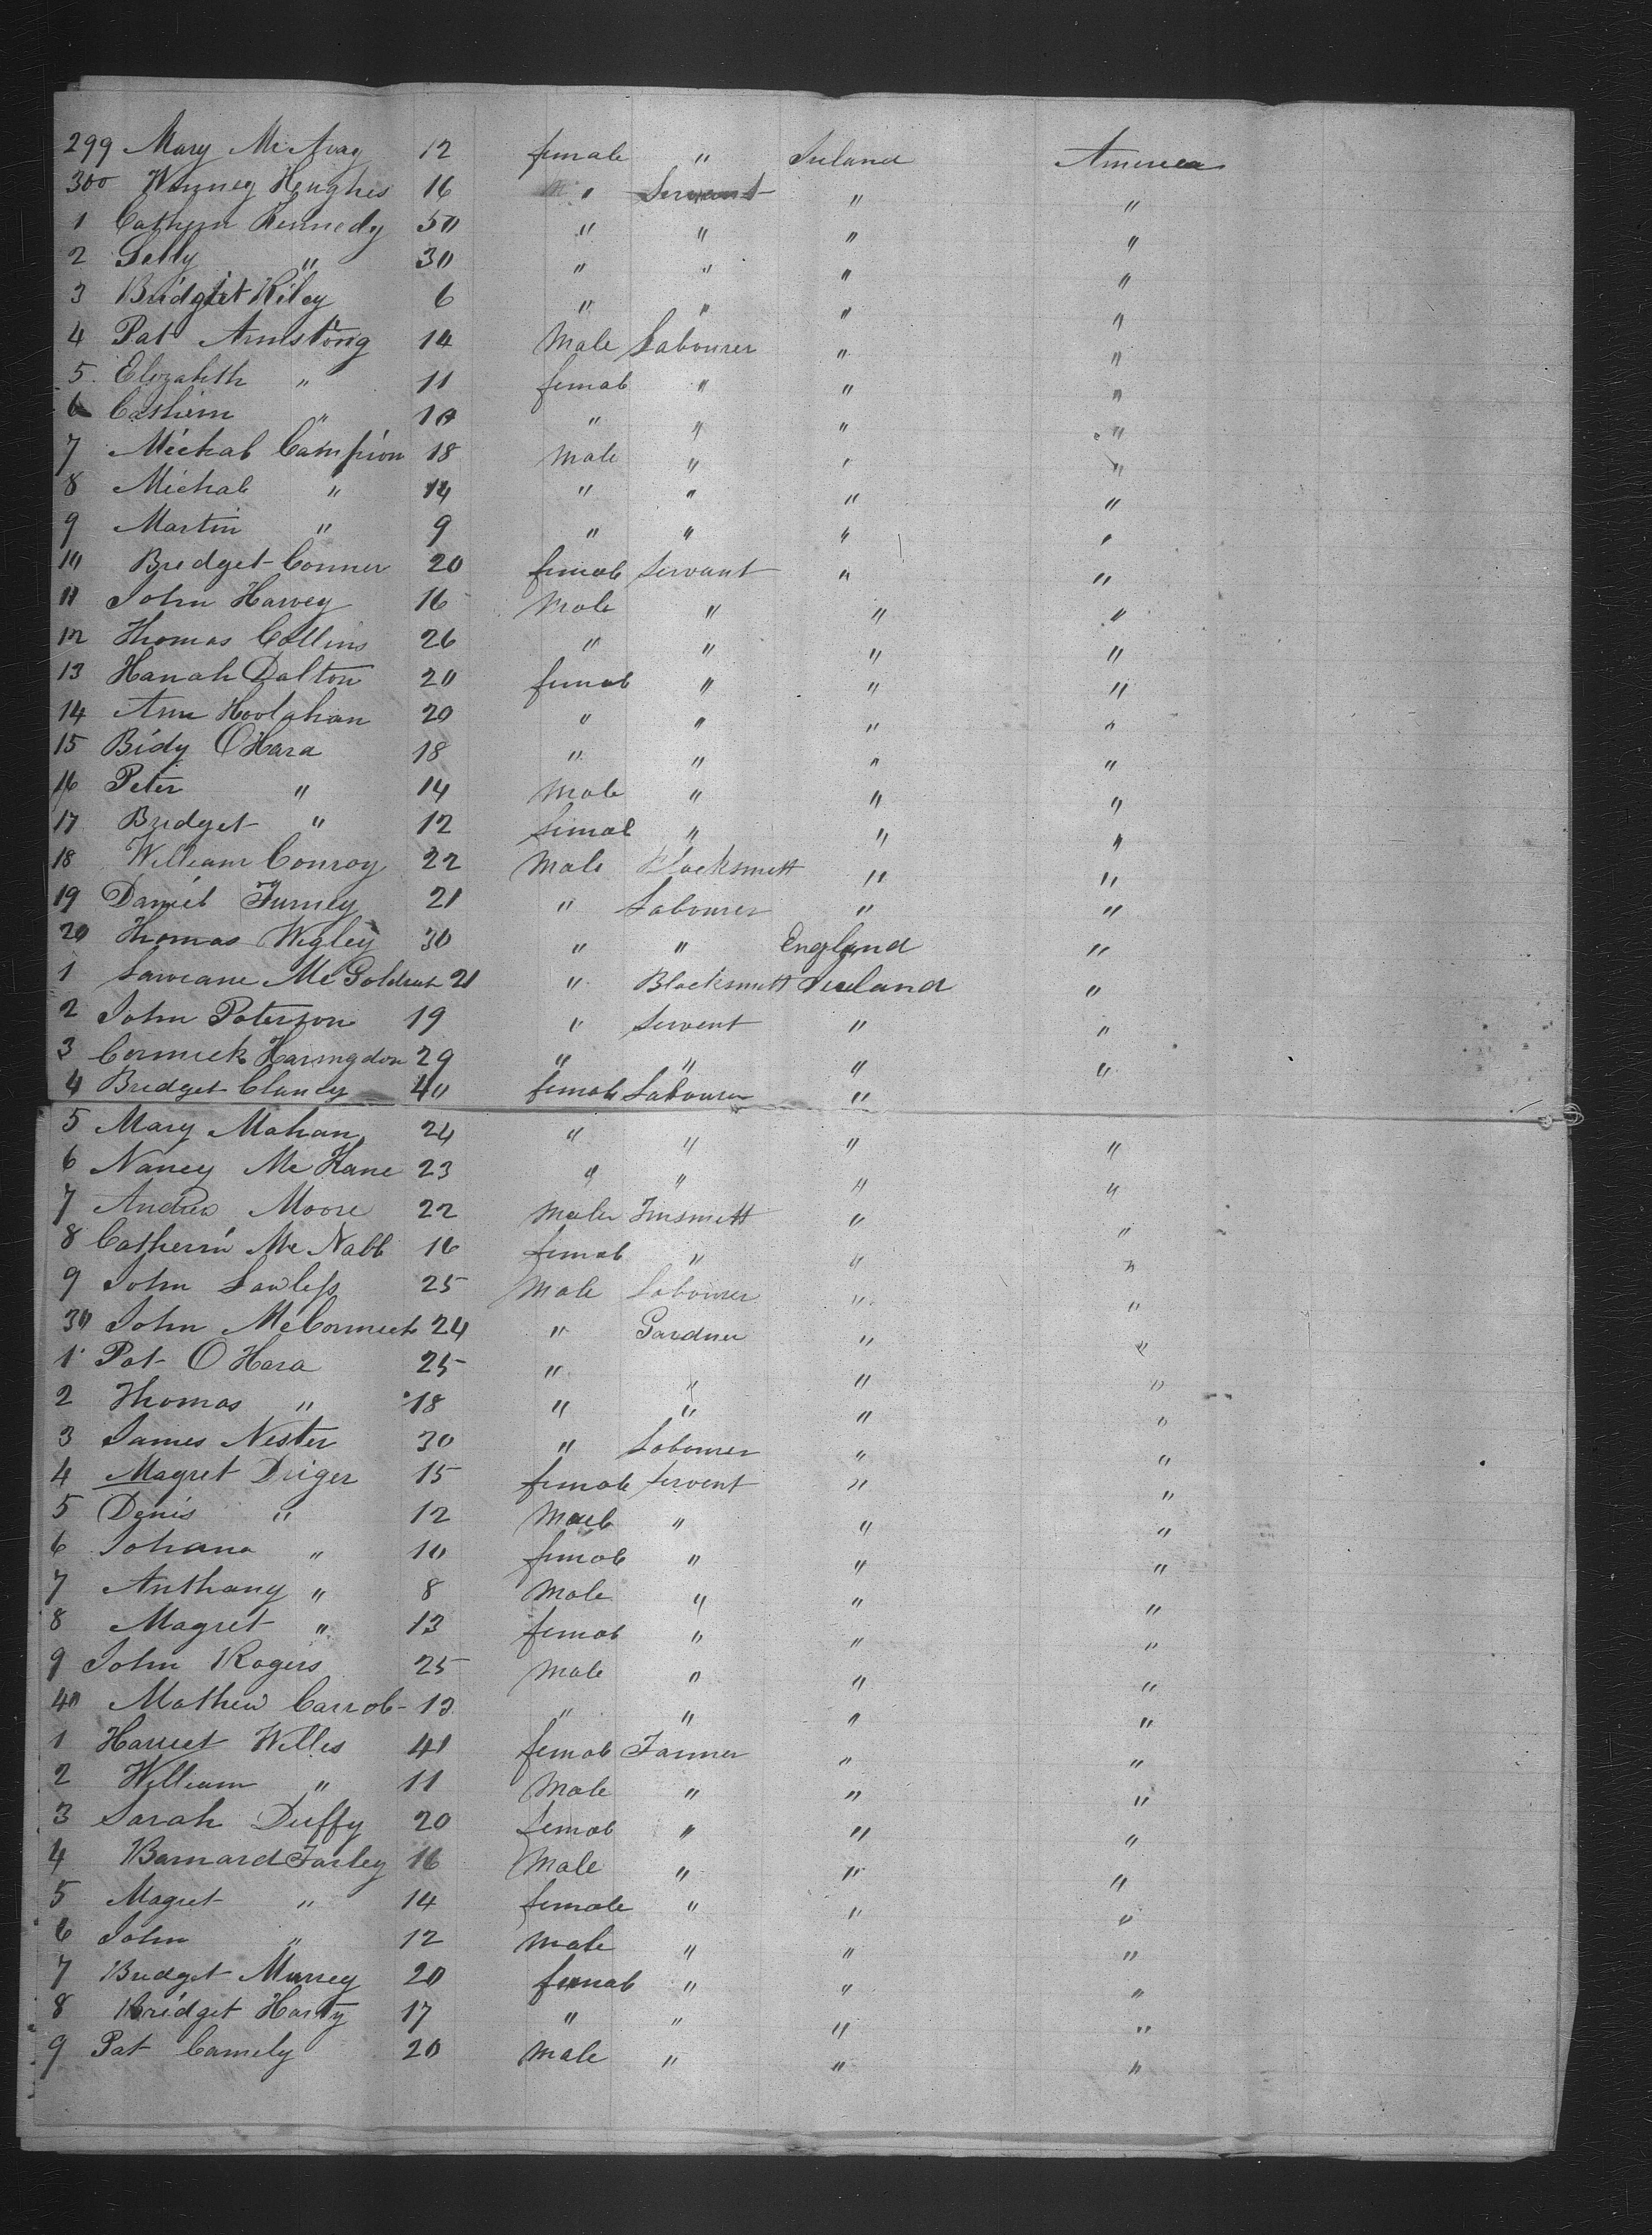 299 Mary McAvay 12 female " Ireland America
300 Winney Heughes 16 " Servant " "
1 Cathern Kennedy 50 " " " "
2 Selly " 30 " " " "
3 Bridget Riley 6 " " " "
4 Pat Armstong 14 Male Labourer " "
5 Elizabeth " 11 female " " "
6 Cathern " 10 " " " "
7 Michal Campion 18 Male " " "
8 Michal " 14 " " " "
9 Martin " 9 " " " "
10 Bredget Conner 20 female Servant " "
11 John Harvey 16 Male " " "
12 Thomas Collins 26 " " " "
13 Hanah Dalton 20 female " " "
14 Ann Hoolahan 20 " " " "
15 Bidy O'Hara 18 " " " "
16 Peter " 14 Male " " "
17 Bridget " 12 female " " "
18 William Conroy 22 Male Blacksmitt " "
19 Daniel Furney 21 " Labourer " "
20 Thomas Wigley 30 " " England "
1 Lawrane McGoldrick 21 " Blacksmitt Ireland "
2 John Peterson 19 " Servent " "
3 Cormick Haringdon 29 " " " "
4 Bredget Clancy 40 female Labourer "
5 Mary Mahan 24 " " " "
6 Nancy McKane 23 " " " "
7 Andrew Moore 22 Male Tinsmitt " "
8 Catherin McNabb 16 female " " "
9 John Lawless 25 Male Labourer " "
30 John McCormick 24 " Gardner " "
1 Pat O Hara 25 " " " "
2 Thomas " 18 " " " "
3 James Nester 30 " Labourer " "
4 Magret Driger 15 female Servent " "
5 Denis " 12 Male " " "
6 Johana " 10 female " " "
7 Anthany " 8 Male " " "
8 Magret " 13 female " " "
9 John Rogers 25 Male " " "
40 Mathew Carrol 13 " " " "
1 Harriet Willis 41 female Farmer " "
2 William " 11 Male " " "
3 Sarah Duffy 20 female " " "
4 Barnard Farley 16 Male " " "
5 Magret " 14 female " " "
6 John " 12 Male " " "
7 Bridget Murrey 20 female " " "
8 Bridget Harty 17 " " " "
9 Pat Camely 20 Male " " "